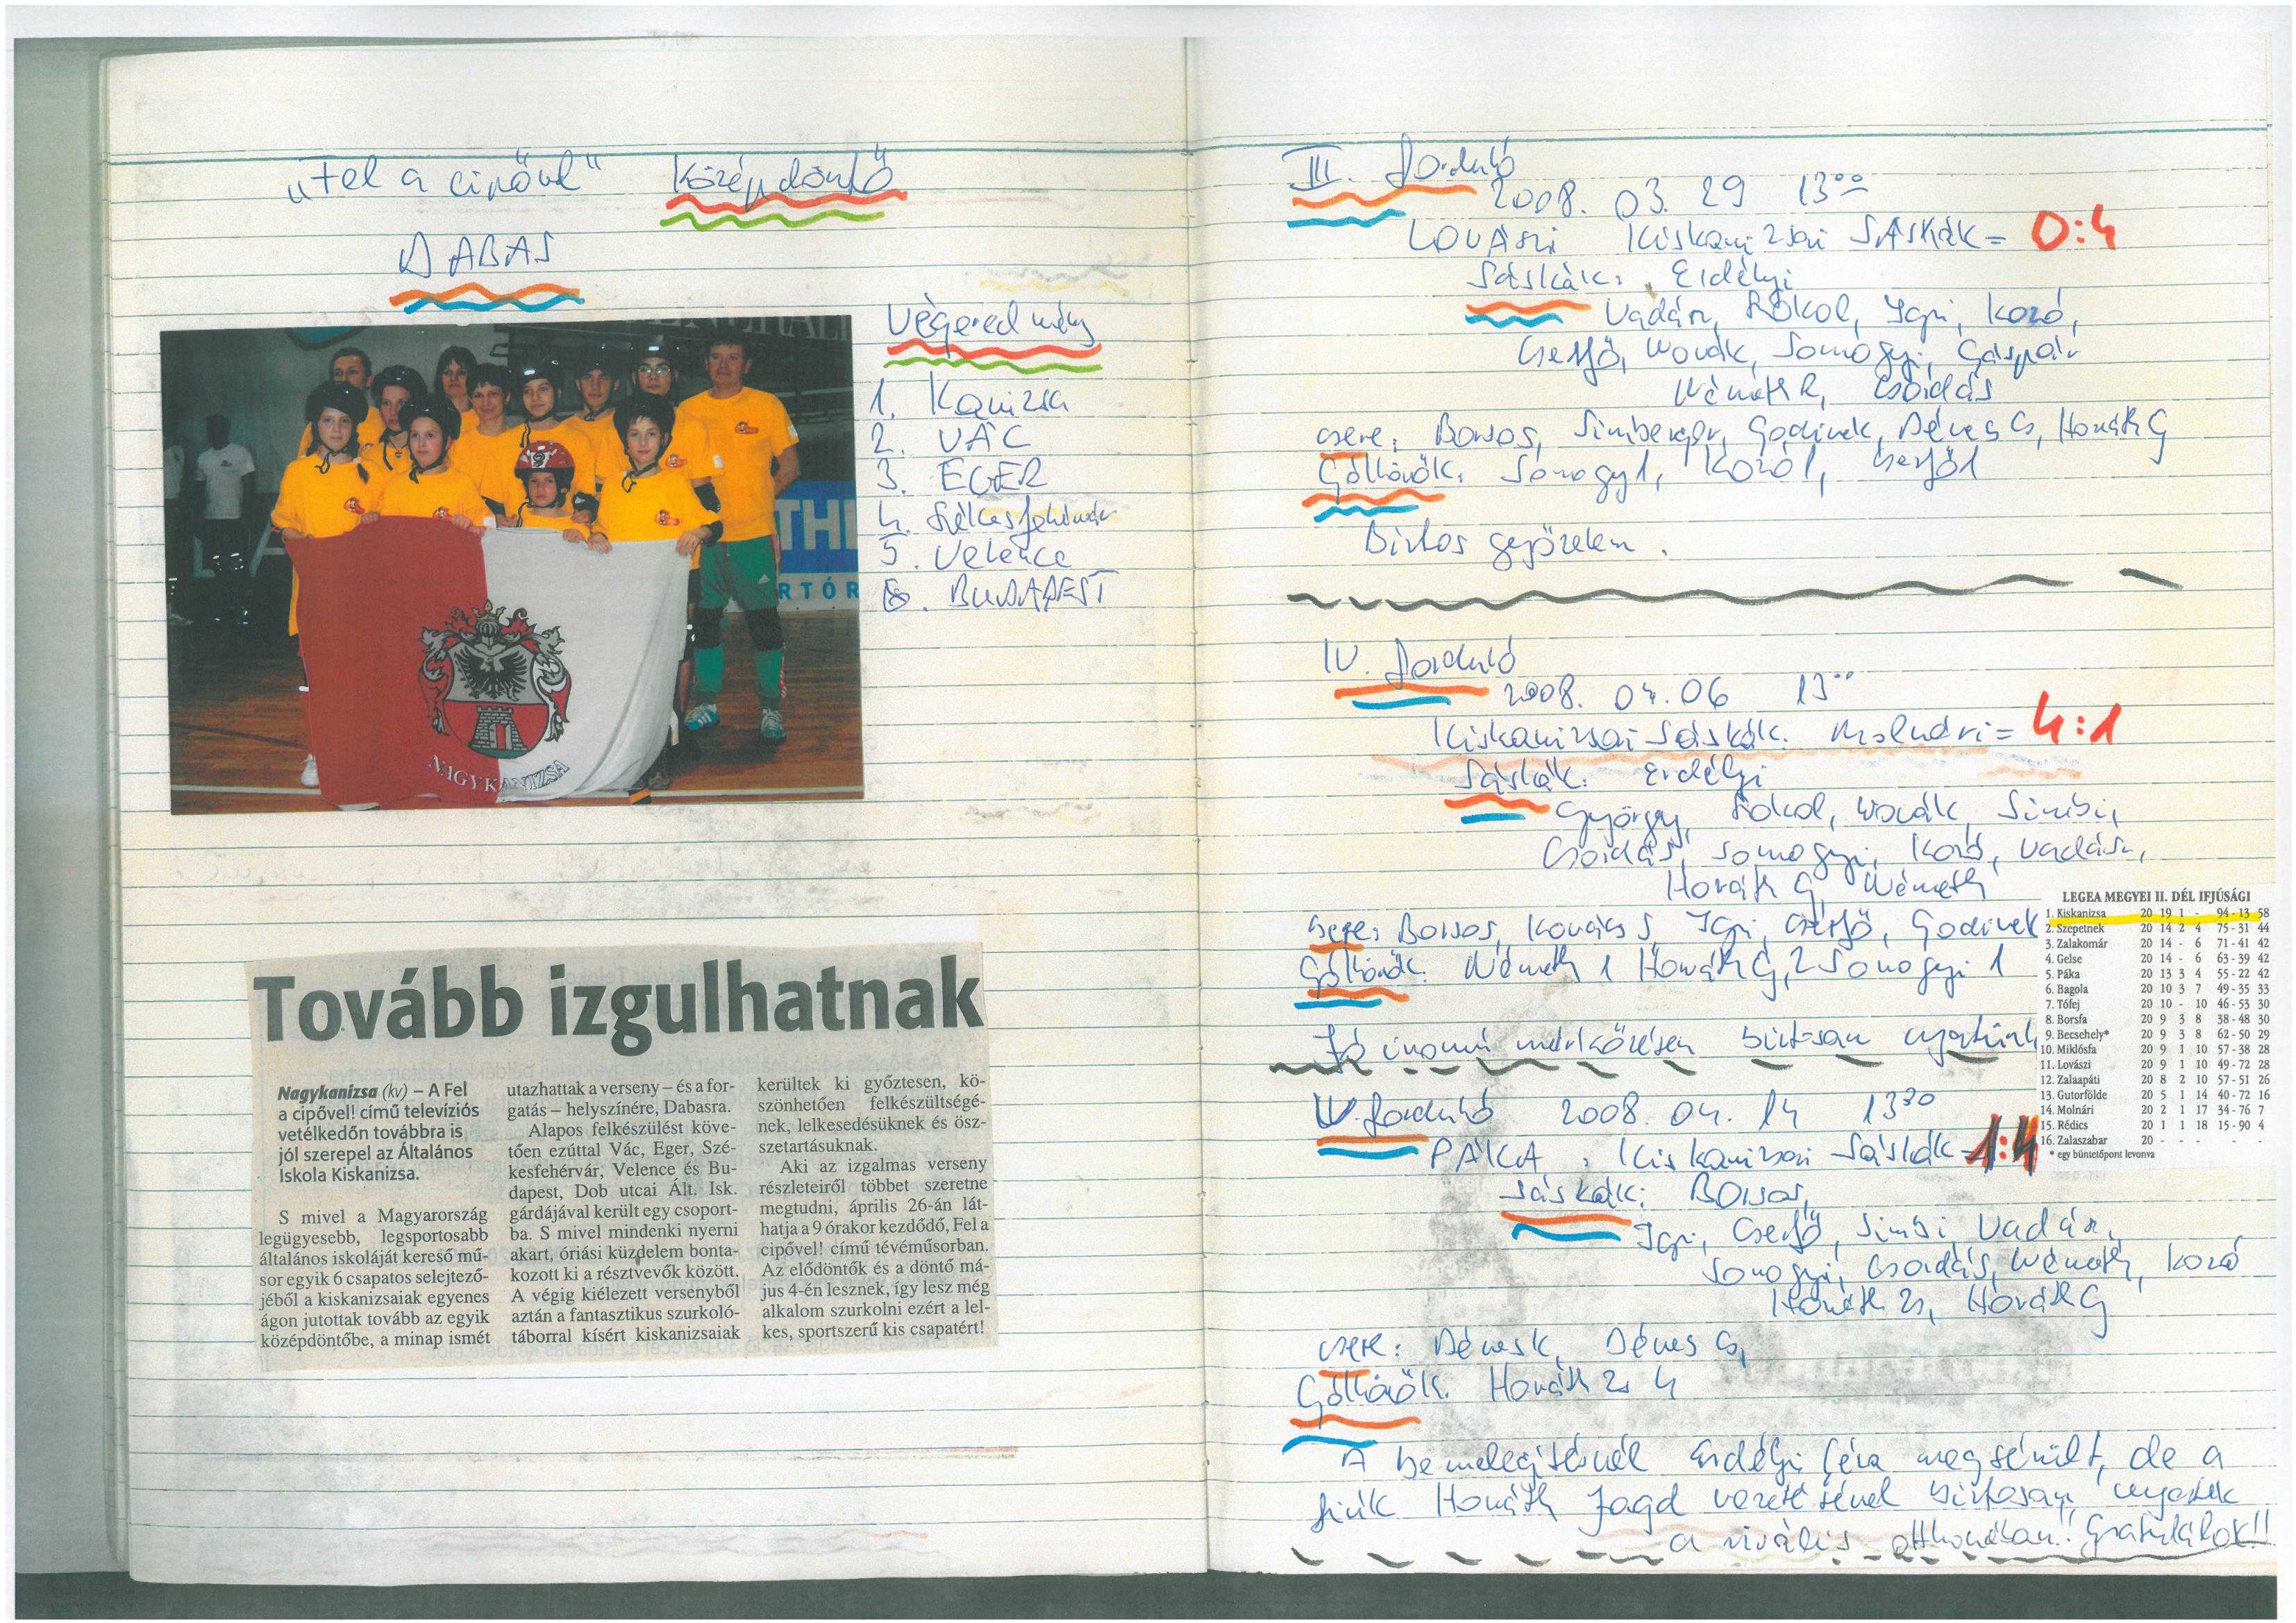 „Fel a cipővel" Középdöntő
DABAS
Végeredmény
1. Kanizsa
2. VÁC
3. EGER
4. Székesfehérvár
5. Velence
6. BUDAPEST
THE
RTÓR
NAGYKANIZSA
Tovább izgulhatnak
Nagykanizsa (kv) – A Fel
a cipővel! című televíziós
vetélkedőn továbbra is
jól szerepel az Általános
Iskola Kiskanizsa.
S mivel a Magyarország
legügyesebb, legsportosabb
általános iskoláját kereső mű-
sor egyik 6 csapatos selejtező-
jéből a kiskanizsaiak egyenes
ágon jutottak tovább az egyik
középdöntőbe, a minap ismét
utazhattak a verseny – és a for-
gatás – helyszínére, Dabasra.
Alapos felkészülést köve-
tően ezúttal Vác, Eger, Szé-
kesfehérvár, Velence és Bu-
dapest, Dob utcai Ált. Isk.
gárdájával került egy csoport-
ba. S mivel mindenki nyerni
akart, óriási küzdelem bonta-
kozott ki a résztvevők között.
A végig kiélezett versenyből
aztán a fantasztikus szurkoló-
táborral kísért kiskanizsaiak
kerültek ki győztesen, kö-
szönhetően felkészültségé-
nek, lelkesedésüknek és ösz-
szetartásuknak.
Aki az izgalmas verseny
részleteiről többet szeretne
megtudni, április 26-án lát-
hatja a 9 órakor kezdődő, Fel a
cipővel! című tévéműsorban.
Az elődöntők és a döntő má-
jus 4-én lesznek, így lesz még
alkalom szurkolni ezért a lel-
kes, sportszerű kis csapatért!
III. forduló
2008. 03. 29 13⁰⁰
LOVÁSZI Kiskanizsai SÁSKÁK = 0:4
Sáskák: Erdélyi
Vadász, Sókol, Igri, Kozó,
Cserfő, Novák, Somogyi, Gáspár
Németh R, Csordás
csere: Borsos, Simberger, Godinek, Dénes Cs, Horváth G
Góllövők: Somogyi 1, Kozó 1, Cserfő 1
Biztos győzelem.
IV. forduló
2008. 04. 06 13⁰⁰
Kiskanizsai Sáskák: Molnári = 4:1
Sáskák: Erdélyi
György, Sókol, Novák, Simbi,
Csordás, Somogyi, Kozó, Vadász,
Horváth G, Németh
csere: Borsos, Kovács S, Igri, Cserfő, Godinek
Góllövők: Németh 1 Horváth G, 2 Somogyi 1
Jó iramú mérkőzésen biztosan nyertünk
LEGEA MEGYEI II. DÉL IFJÚSÁGI
1. Kiskanizsa 20 19 1 - 94-13 58
2. Szepetnek 20 14 2 4 75-31 44
3. Zalakomár 20 14 - 6 71-41 42
4. Gelse 20 14 - 6 63-39 42
5. Páka 20 13 3 4 55-22 42
6. Bagola 20 10 3 7 49-35 33
7. Tófej 20 10 - 10 46-53 30
8. Borsfa 20 9 3 8 38-48 30
9. Becsehely* 20 9 3 8 62-50 29
10. Miklósfa 20 9 1 10 57-38 28
11. Lovászi 20 9 1 10 49-72 28
12. Zalaapáti 20 8 2 10 57-51 26
13. Gutorfölde 20 5 1 14 40-72 16
14. Molnári 20 2 1 17 34-76 7
15. Rédics 20 1 1 18 15-90 4
16. Zalaszabar 20 - - - - -
* egy büntetőpont levonva
V. forduló 2008. 04. 14 13³⁰
PÁKA : Kiskanizsai Sáskák - 1:4
Sáskák: Borsos,
Igri, Cserfő, Simbi, Vadász,
Somogyi, Csordás, Németh, Kozó
Horváth Zs, Horváth G
csere: Dénes K, Dénes Cs,
Góllövők: Horváth Zs 4
A bemelegítésnél Erdélyi Géza megsérült, de a
fiúk Horváth Zsolt vezetésével biztosan nyertek
a rivális otthonában! Gratulálok!!